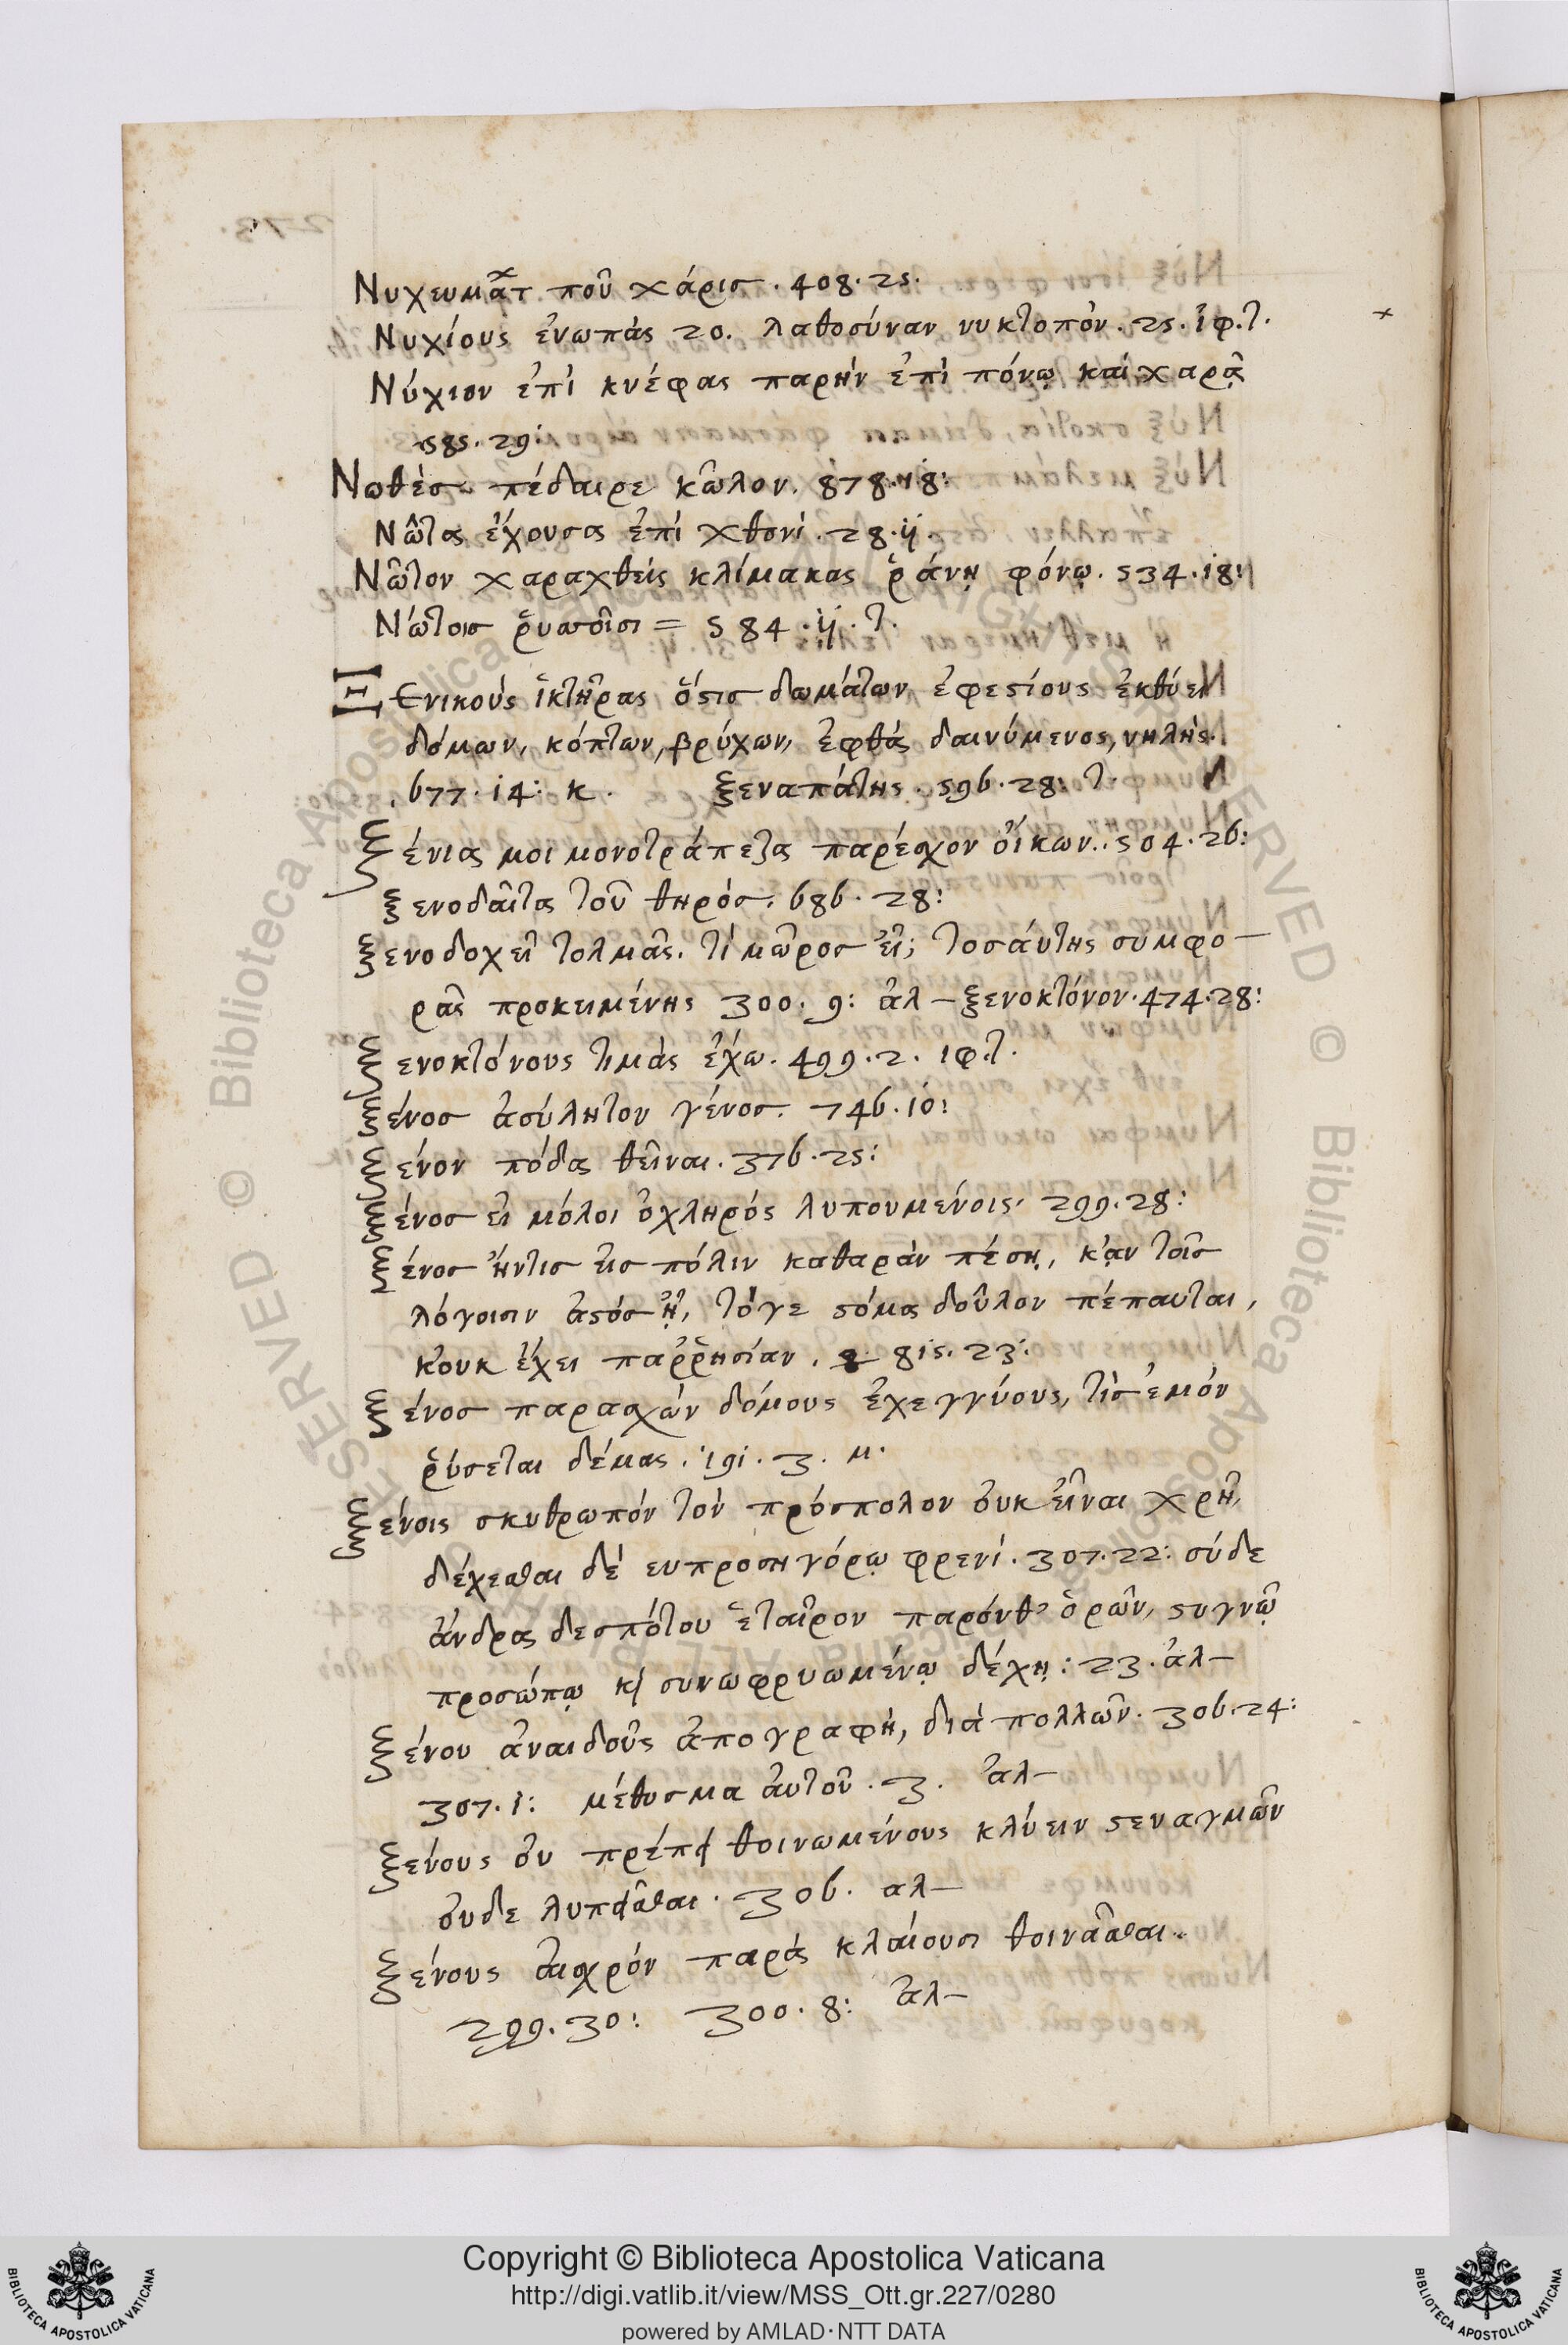 Νυχευμᾶτ ποῦ χάρισ. 408. 25.
Νυχίους ἐνωπὰς 20. λαθοσύναν νυκτοπὸν. 25. ἰφ. τ.
Νύχιον ἐπὶ κνέφας παρὴν ἐπὶ πόνῳ καὶ χαρᾷ
585. 29:
Νωθὲσ πέδαιρε κῶλον. 878. 18:
Νῶτας ἔχουσα ἐπὶ χθονὶ. 28. ij.
Νῶτον χαραχθεὶς κλίμακας ῥάνῃ φόνῳ. 534. 18:
Νώτοισ
= 584. ij. τ.
Ξενικοὺς ἱκτῆρας ὅστισ δωμάτων ἐφεστίους ἐκθύει
δόμων, κόπτων, βρύχων, ἐφθὰ δαινύμενος, νηλὴς.
677. 14: κ. ξεναπάτης. 596. 28: τ.
ξένια μοι μονοτράπεζα παρέσχον οἴκων. 504. 26:
ξενοδαῖτα τοῦ θηρόσ. 686. 28:
ξενοδοχεῖ τολμᾶς. τί μῶρος εἶ; τοσάυτης συμφο-
ρᾶς προκειμένης 300. 9: ἀλ- ξενοκτόνον. 474. 28:
ξενοκτόνους τιμὰς ἔχω. 499. 2. ιφ. τ.
ξένοσ ἀσύλητον γένοσ. 746. 10:
ξένον πόδα θεῖναι. 376. 25:
ξένοσ εἰ μόλοι ὀχληρὸς λυπουμένοις. 299. 28:
ξένοσ ἤντισ εἰσ πόλιν καθαρὰν πέσῃ, κᾂν τοῖσ
λόγοισιν ἀστόσ ᾖ, τόγε στόμα δοῦλον πέπαυται,
κοὐκ ἔχει παῤῥησίαν. 815. 23:
ξένοσ παρασχὼν δόμους ἐχεγγύους, τίσ ἐμὸν
ῥύσεται δέμας. 191. 3. μ.
ξένοις σκυθρωπὸν τὸν πρόσπολον οὐκ εἶναι χρὴ,
δέχεσθαι δὲ ευπροσηγόρῳ φρενὶ. 307. 22: σύδε
ἄνδρα δεσπότου ἑταῖρον παρόνθ' ὁρῶν, στυγνῷ
προσώπῳ κ συνωφρυωμένῳ δέχῃ: 23. ἀλ-
ξένου ἀναιδοῦς ἀπογραφὴ, διὰ πολλῶν. 306. 24:
307. 1: μέθυσμα ἀυτοῦ. 3. ἀλ-
ξένους οὐ πρέπει θοινωμένους κλύειν στεναγμῶν
οὐδε λυπεῖσθαι. 306. αλ-
ξένους αἰσχρὸν παρὰ κλαίουσι θοινᾶσθαι.
299. 30: 300. 8: ἀλ-
Copyright © Biblioteca Apostolica Vaticana
http://digi.vatlib.it/view/MSS_Ott.gr.227/0280
powered by AMLAD·NTT DATA